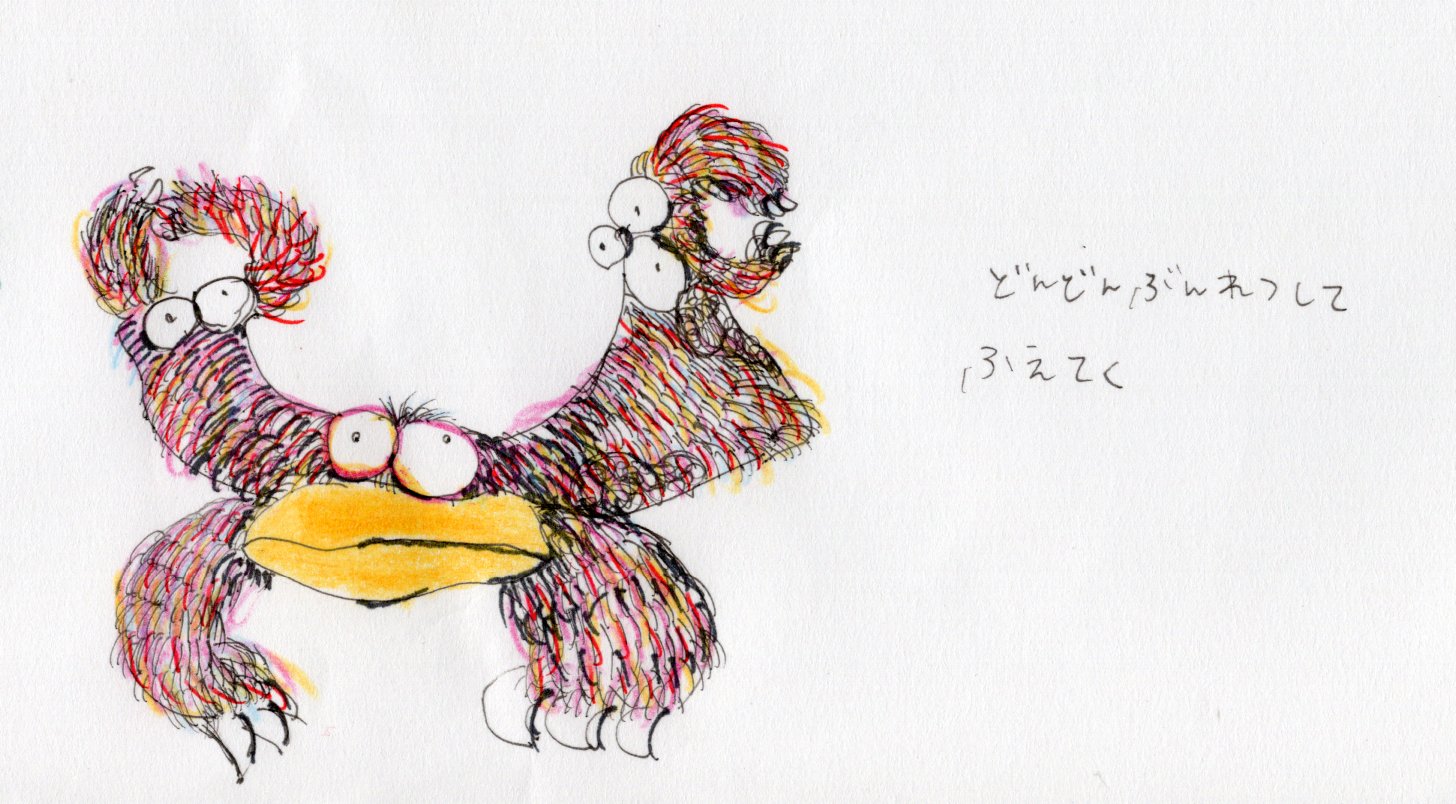 どんどんぶんれつして
ふえてく